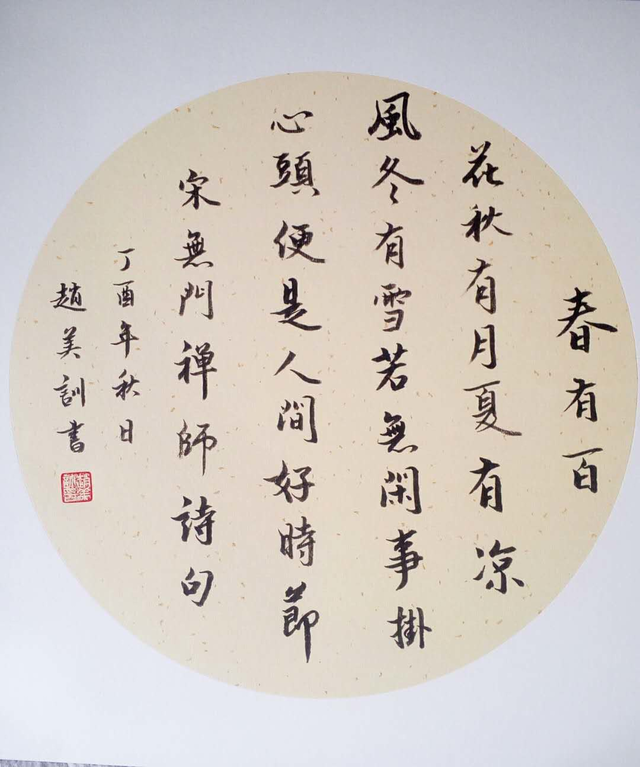 春有百
花秋有月夏有凉
風冬有雪若無閑事掛
心頭便是人間好時節
宋無門禅師詩句
丁酉年秋日
趙美訓書